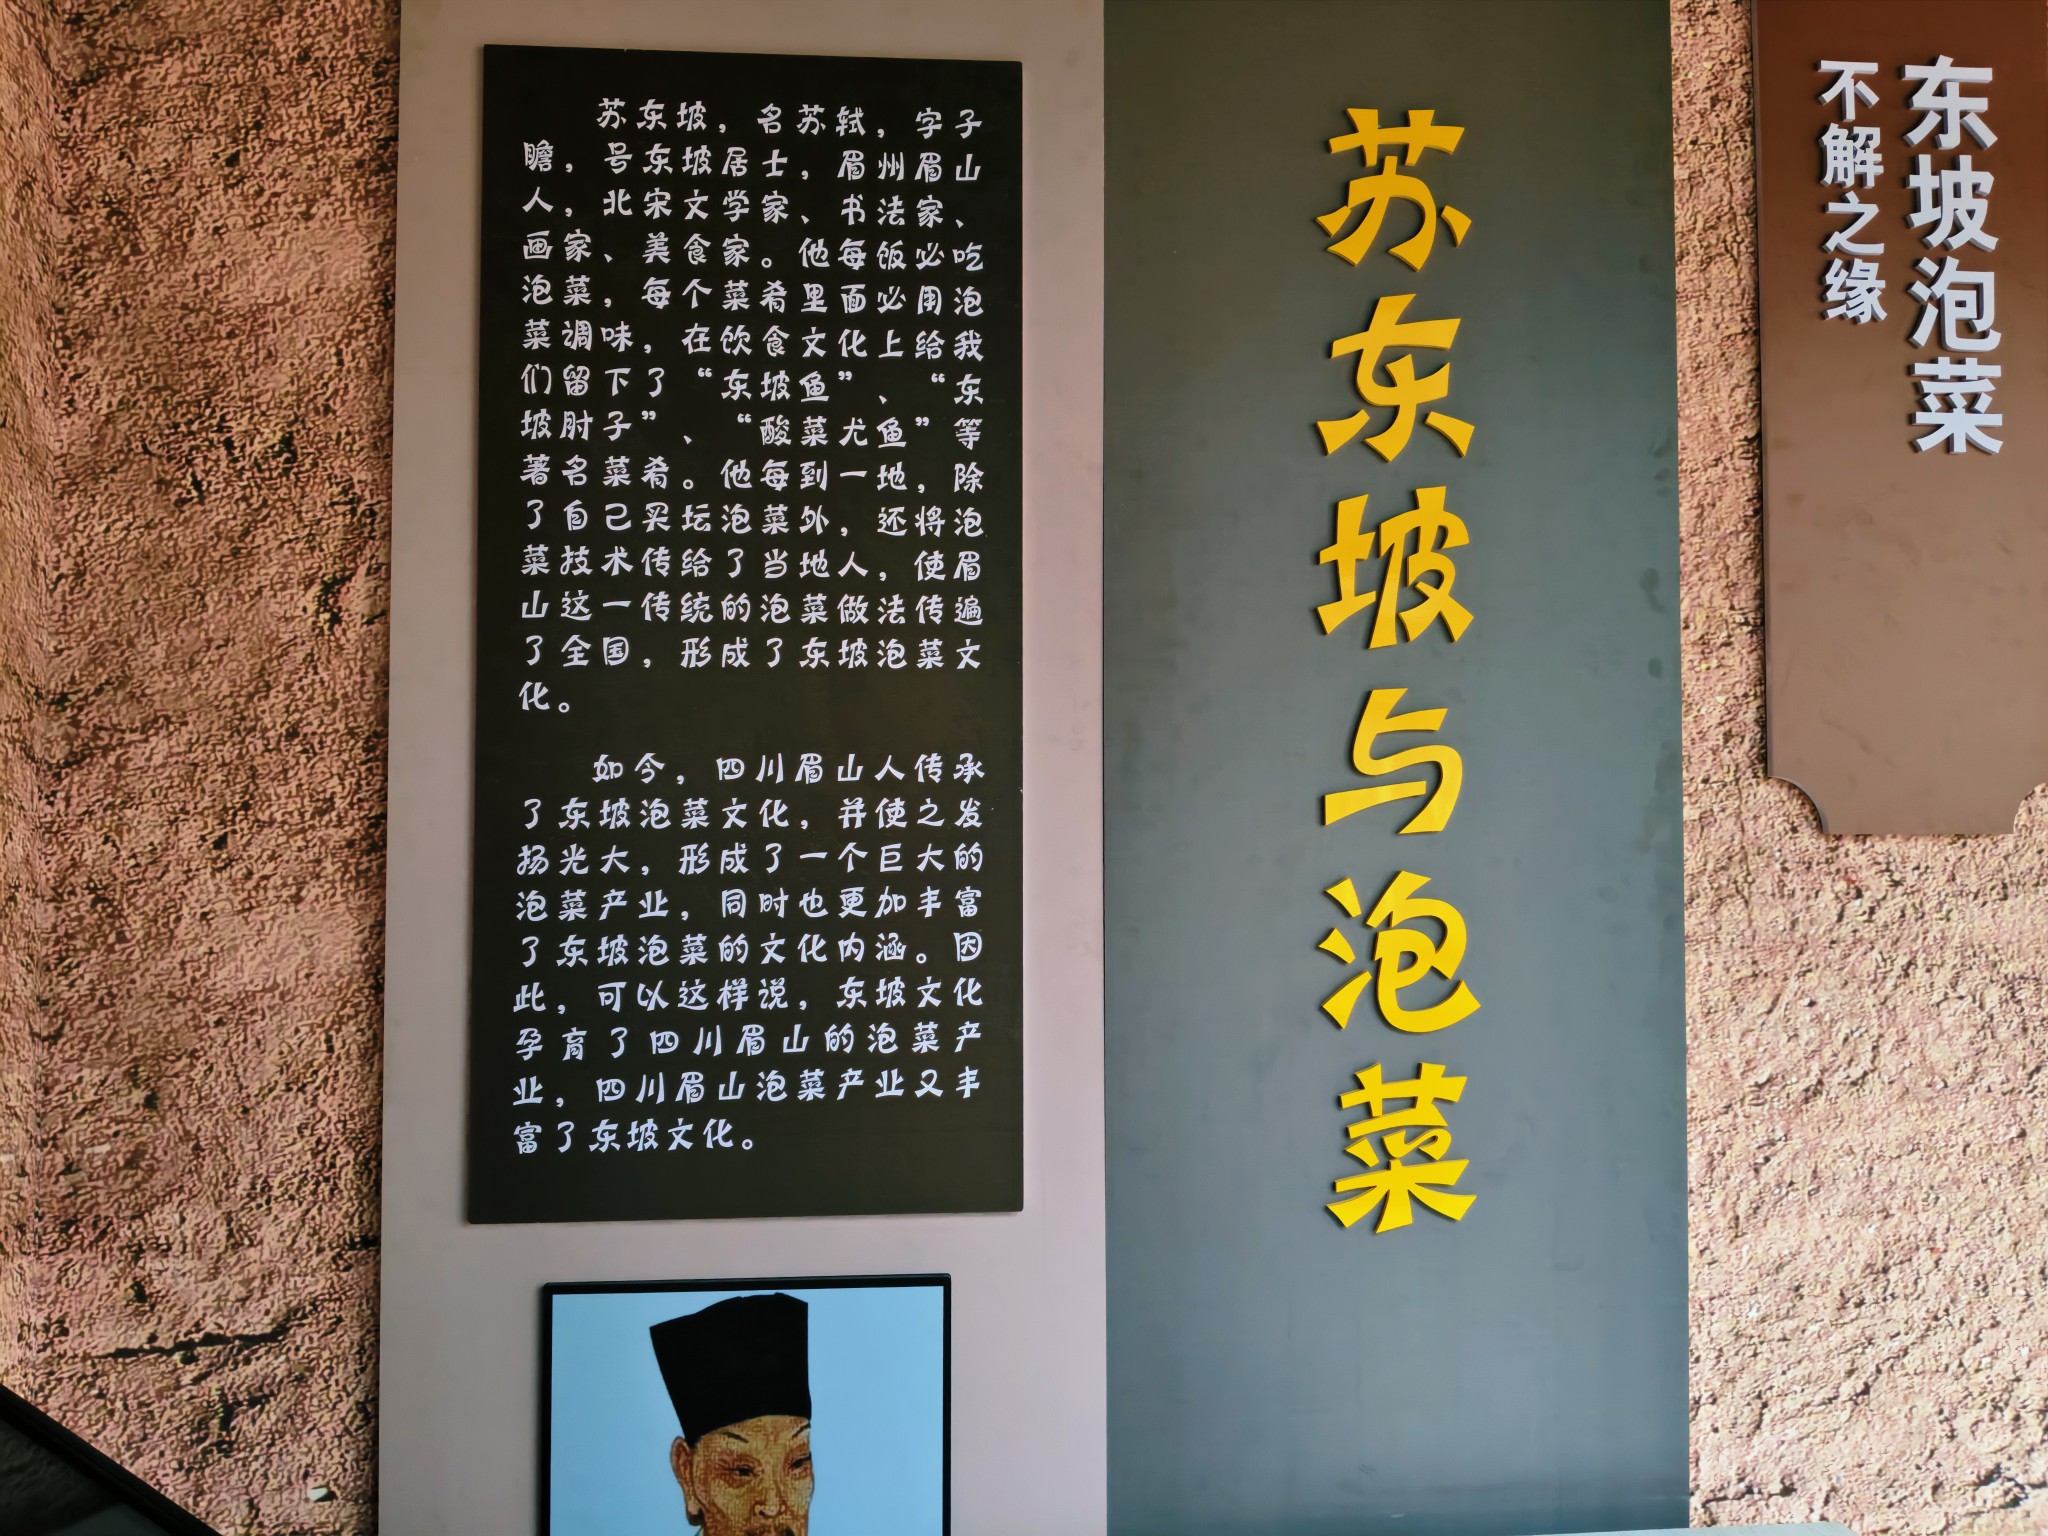 东坡泡菜
不解之缘
苏东坡与泡菜
苏东坡，名苏轼，字子
瞻，号东坡居士，眉州眉山
人，北宋文学家、书法家、
画家、美食家。他每饭必吃
泡菜，每个菜肴里面必用泡
菜调味，在饮食文化上给我
们留下了“东坡鱼”、“东
坡肘子”、“酸菜尤鱼”等
著名菜肴。他每到一地，除
了自己买坛泡菜外，还将泡
菜技术传给了当地人，使眉
山这一传统的泡菜做法传遍
了全国，形成了东坡泡菜文
化。
如今，四川眉山人传承
了东坡泡菜文化，并使之发
扬光大，形成了一个巨大的
泡菜产业，同时也更加丰富
了东坡泡菜的文化内涵。因
此，可以这样说，东坡文化
孕育了四川眉山的泡菜产
业，四川眉山泡菜产业又丰
富了东坡文化。